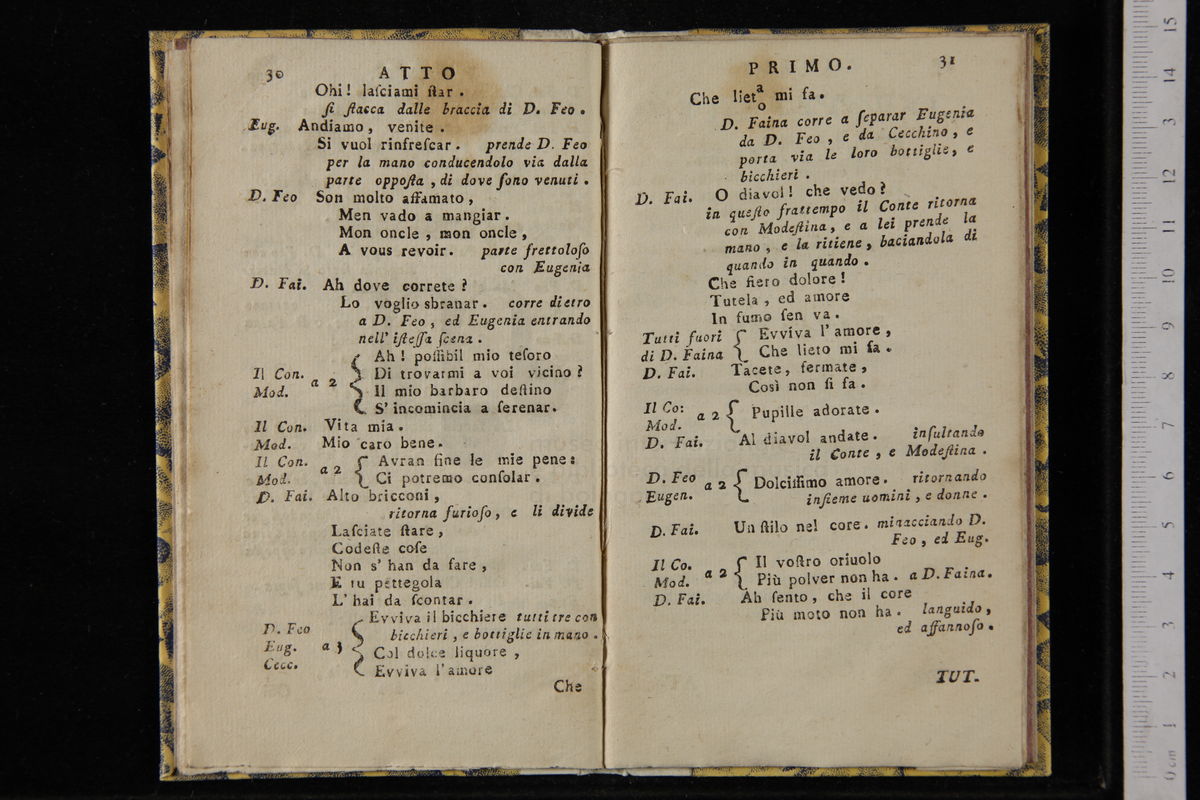 30 ATTO
Ohi! laſciami ſtar.
ſi ſtacca dalle braccia di D. Feo.
Eug. Andiamo, venite.
Si vuol rinfreſcar. prende D. Feo
per la mano conducendolo via dalla
parte oppoſta, di dove ſono venuti.
D. Feo Son molto affamato,
Men vado a mangiar.
Mon oncle, mon oncle,
A vous revoir. parte frettoloſo
con Eugenia
D. Fai. Ah dove correte?
Lo voglio sbranar. corre dietro
a D. Feo, ed Eugenia entrando
nell' iſteſſa ſcena.
Ah! poſſibil mio teſoro
Il Con. Di trovarmi a voi vicino?
a 2
Mod. Il mio barbaro deſtino
S' incomincia a ſerenar.
Il Con. Vita mia.
Mod. Mio caro bene.
Il Con. a 2 Avran fine le mie pene:
Mod. Ci potremo conſolar.
D. Fai. Alto bricconi,
ritorna furioſo, e li divide
Laſciate ſtare,
Codeſte coſe
Non s' han da fare,
E tu pettegola
L' hai da ſcontar.
Evviva il bicchiere tutti tre con
D. Feo bicchieri, e bottiglie in mano.
Eug. a 3 Col dolce liquore,
Cecc. Evviva l' amore
Che
PRIMO. 31
Che lietao mi fa.
D. Faina corre a ſeparar Eugenia
da D. Feo, e da Cecchino, e
porta via le loro bottiglie, e
bicchieri.
D. Fai. O diavol! che vedo?
in queſto frattempo il Conte ritorna
con Modeſtina, e a lei prende la
mano, e la ritiene, baciandola di
quando in quando.
Che fiero dolore!
Tutela, ed amore
In fumo ſen va.
Tutti fuori Evviva l' amore,
di D. Faina Che lieto mi fa.
D. Fai. Tacete, fermate,
Così non ſi fa.
Il Co: a 2 Pupille adorate.
Mod.
D. Fai. Al diavol andate. inſultando
il Conte, e Modeſtina.
D. Feo a 2 Dolciſſimo amore. ritornando
Eugen. inſieme uomini, e donne.
D. Fai. Un ſtilo nel core. minacciando D.
Feo, ed Eug.
Il Co. a 2 Il voſtro oriuolo
Mod. Più polver non ha. a D. Faina.
D. Fai. Ah ſento, che il core
Più moto non ha. languido,
ed affannoſo.
TUT.
15
14
13
12
11
10
9
8
7
6
5
4
3
2
1
0 cm